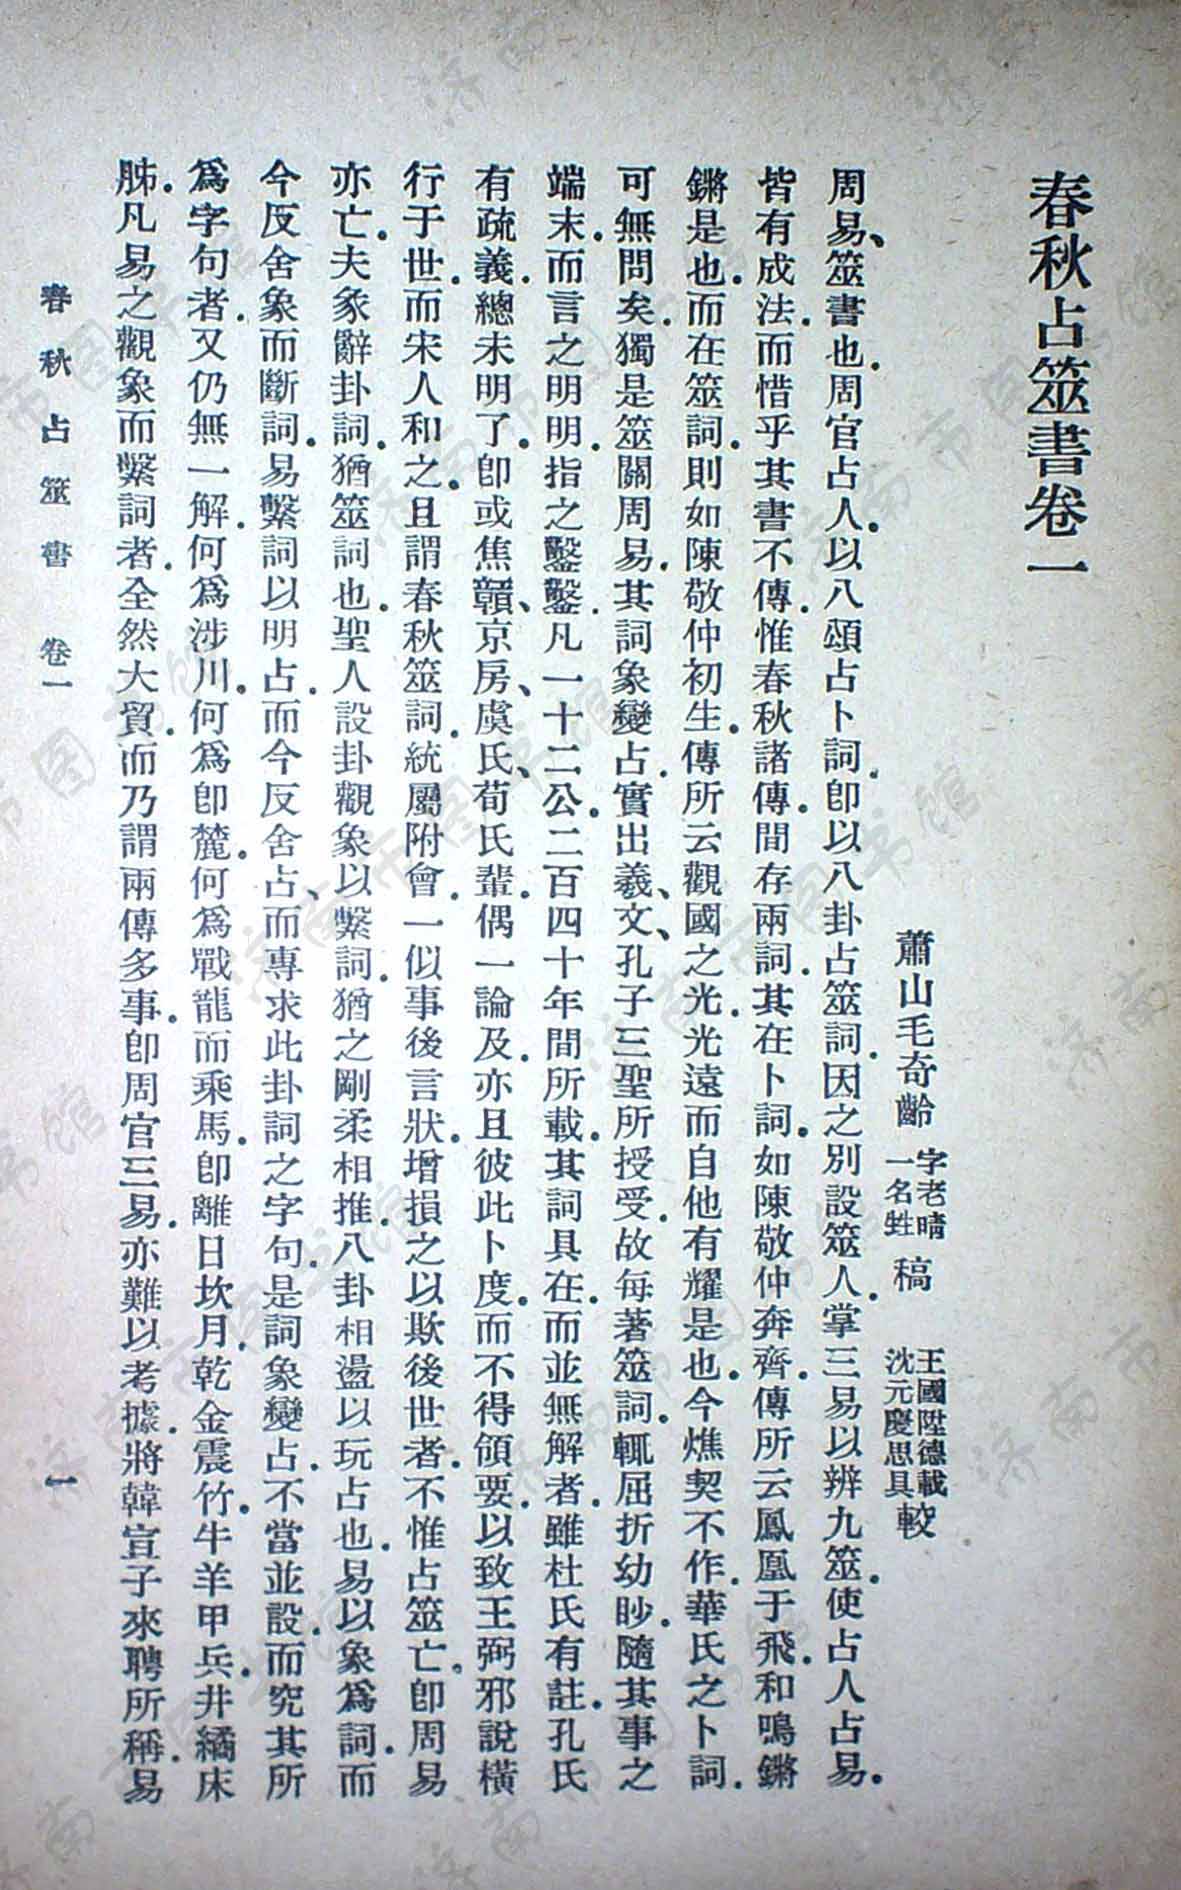 春秋占筮書卷一
蕭山毛奇齡字老晴一名甡稿 王國陞德載沈元慶思具較
周易、筮書也.周官占人.以八頌占卜詞.卽以八卦占筮詞.因之別設筮人.掌三易以辨九筮.使占人占易.
皆有成法.而惜乎其書不傳.惟春秋諸傳.間存兩詞.其在卜詞.如陳敬仲奔齊.傳所云鳳凰于飛.和鳴鏘
鏘是也.而在筮詞.則如陳敬仲初生.傳所云觀國之光.光遠而自他有耀是也.今燋契不作.華氏之卜詞.
可無問矣.獨是筮關周易.其詞象變占.實出羲、文、孔子三聖所授受.故每著筮詞.輒屈折幼眇.隨其事之
端末.而言之明明.指之鑿鑿.凡一十二公.二百四十年間所載.其詞具在.而並無解者.雖杜氏有註.孔氏
有疏義.總未明了.卽或焦贛、京房、虞氏、荀氏輩.偶一論及.亦且彼此卜度.而不得領要.以致王弼邪說橫
行于世.而宋人和之.且謂春秋筮詞.統屬附會.一似事後言狀.增損之以欺後世者.不惟占筮亡.卽周易
亦亡.夫彖辭卦詞.猶筮詞也.聖人設卦觀象以繫詞.猶之剛柔相推.八卦相盪以玩占也.易以象爲詞.而
今反舍象而斷詞.易繫詞以明占.而今反舍占、而專求此卦詞之字句.是詞象變占.不當並設.而究其所
爲字句者.又仍無一解.何爲涉川.何爲卽麓.何爲戰龍而乘馬.卽離日坎月.乾金震竹.牛羊甲兵.井繘床
胏.凡易之觀象而繫詞者.全然大貿.而乃謂兩傳多事.卽周官三易.亦難以考據.將韓宣子來聘所稱.易
春秋占筮書 卷一 一